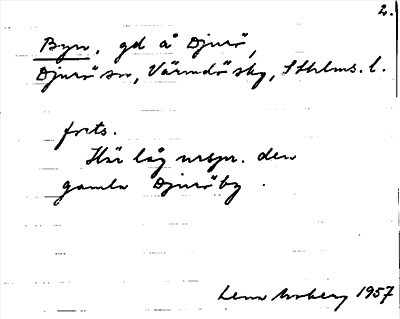 2.
Byn, gd å Djurö,
Djurö sn, Värmdö sky, Sthlms. l.
forts.
Här låg urspr. den
gamla Djurö by.
Lena Moberg 1957